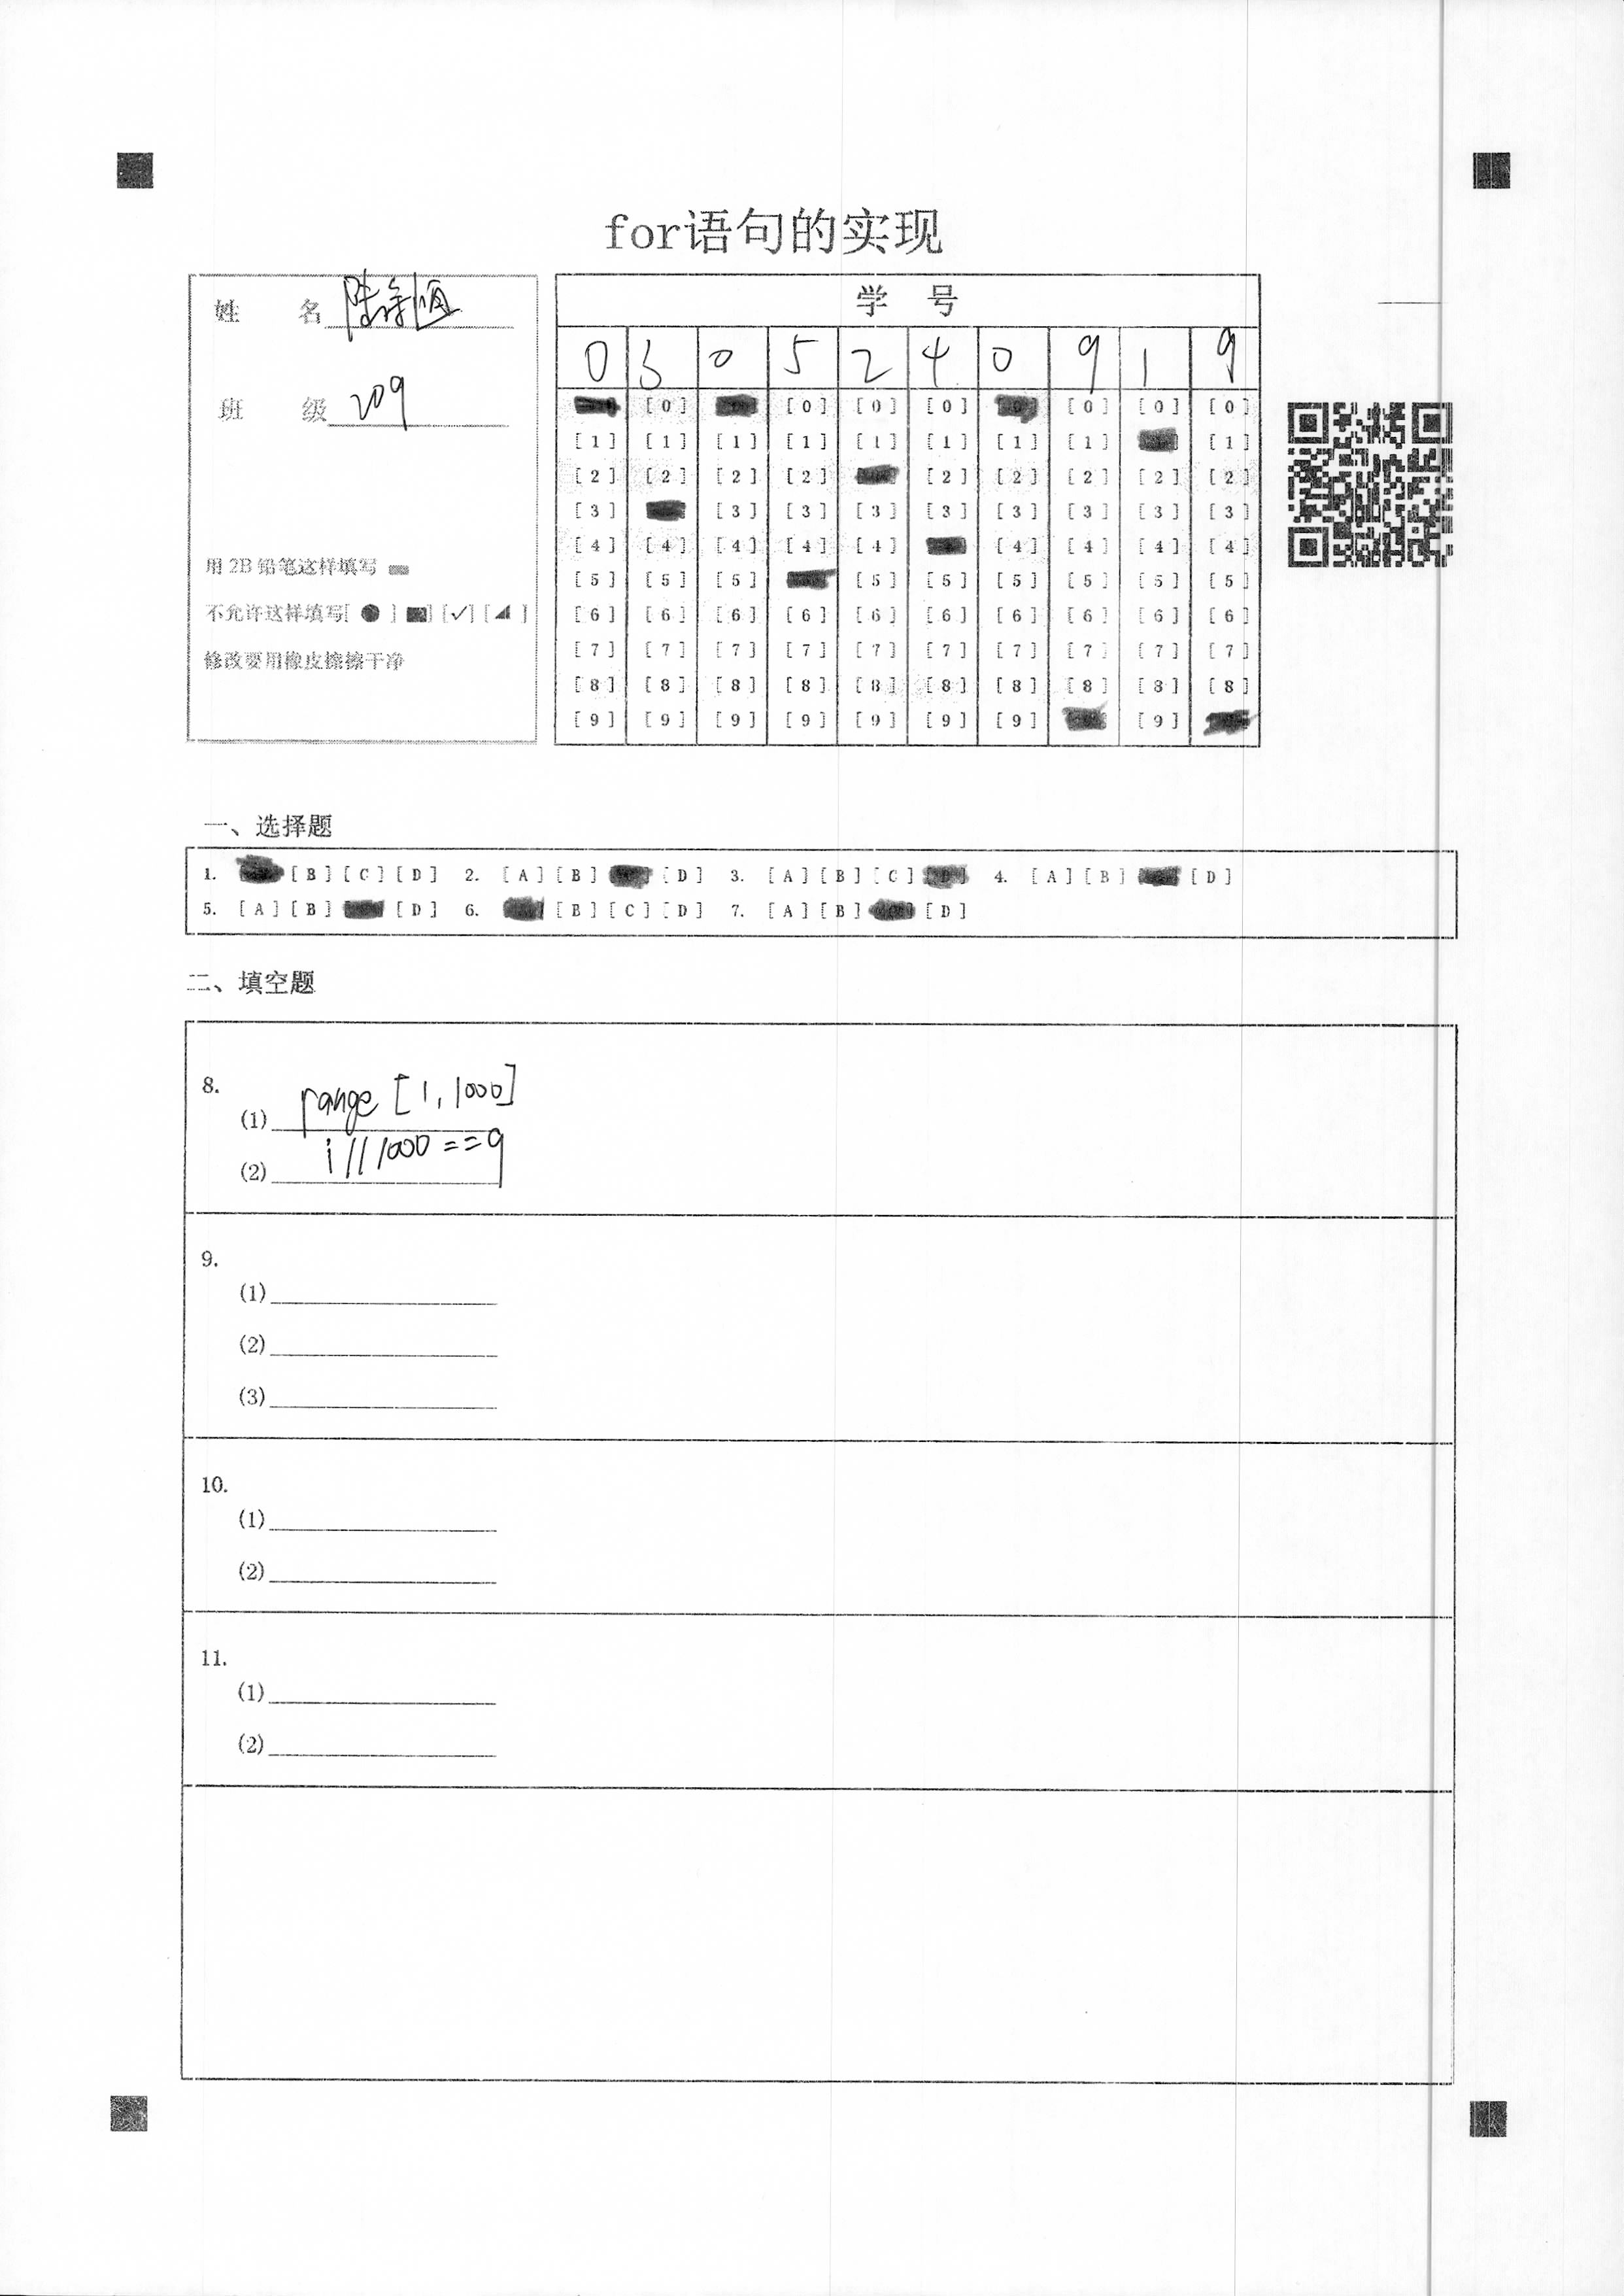 for语句的实现
姓 名
班 级 209
用 2B 铅笔这样填写
不允许这样填写[ ● ] [■] [✓] [◢ ]
修改要用橡皮擦擦干净
学 号
0 3 0 5 2 4 0 9 1 9
[0] [0] [0] [0] [0] [0] [0]
[1] [1] [1] [1] [1] [1] [1] [1] [1]
[2] [2] [2] [2] [2] [2] [2] [2] [2]
[3] [3] [3] [3] [3] [3] [3] [3] [3]
[4] [4] [4] [4] [4] [4] [4] [4] [4]
[5] [5] [5] [5] [5] [5] [5] [5] [5]
[6] [6] [6] [6] [6] [6] [6] [6] [6] [6]
[7] [7] [7] [7] [7] [7] [7] [7] [7] [7]
[8] [8] [8] [8] [8] [8] [8] [8] [8] [8]
[9] [9] [9] [9] [9] [9] [9] [9]
一、选择题
1. [B] [C] [D] 2. [A] [B] [D] 3. [A] [B] [C] 4. [A] [B] [D]
5. [A] [B] [D] 6. [B] [C] [D] 7. [A] [B] [D]
二、填空题
8.
(1) range [1, 1000]
(2) i // 1000 == 9
9.
(1)
(2)
(3)
10.
(1)
(2)
11.
(1)
(2)